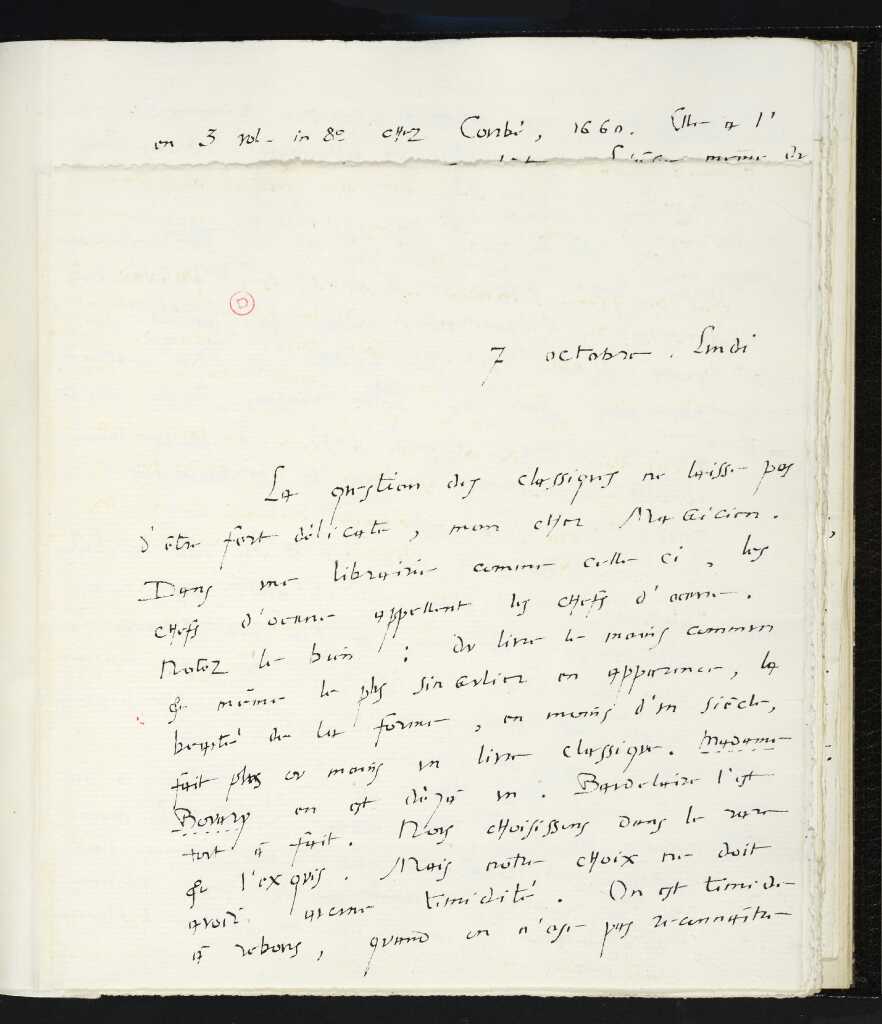 en 3 vol. in 8º chez Corbé, 1660. Elle a l'
même de
7 octobre. Lundi
La question des classiques ne laisse pas
d'être fort délicate, mon cher Magicien.
Dans une librairie comme celle ci, les
chefs d'oeuvre appellent les chefs d'oeuvre.
Notez le bien : du livre le moins commun
& même le plus singulier en apparence, la
beauté de la forme, en moins d'un siècle,
fait plus ou moins un livre classique. Madame
Bovary en est déjà un. Baudelaire l'est
tout à fait. Nous choisissons dans le rare
& l'exquis. Mais notre choix ne doit
avoir aucune timidité. On est timide
à rebours, quand on n'ose pas reconnaître